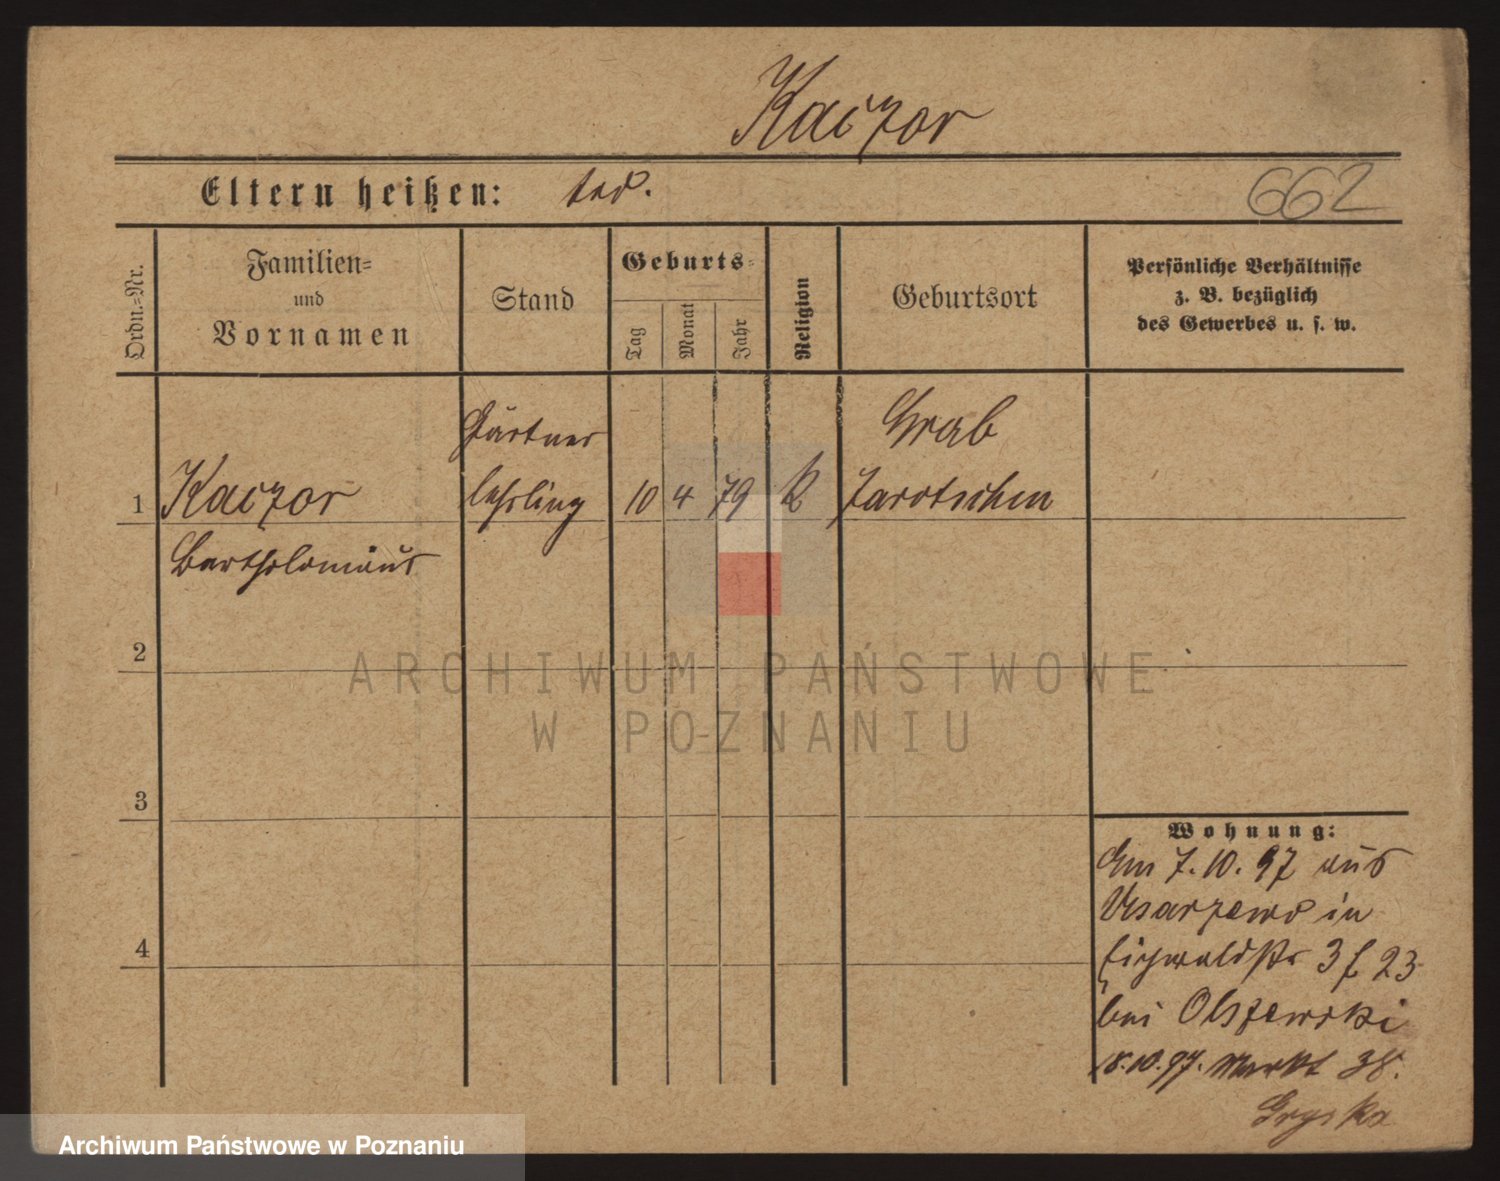 Kaczor
Eltern heißen: tod.
662
Ordn.-Nr.
Familien-
und
Vornamen
Stand
Geburts-
Tag
Monat
Jahr
Religion
Geburtsort
Persönliche Verhältnisse
z. B. bezüglich
des Gewerbes u. s. w.
Gärtner
Grab
1 Kaczor lehrling 10 4 79 K Jarotschin
Bartholomäus
2
ARCHIWUM PAŃSTWOWE
W POZNANIU
3
Wohnung:
Am 7.10.97 aus
in
4
Eichwaldstr 3 f 23
bei Olszewski
18.10.97. Markt 38.
Archiwum Państwowe w Poznaniu